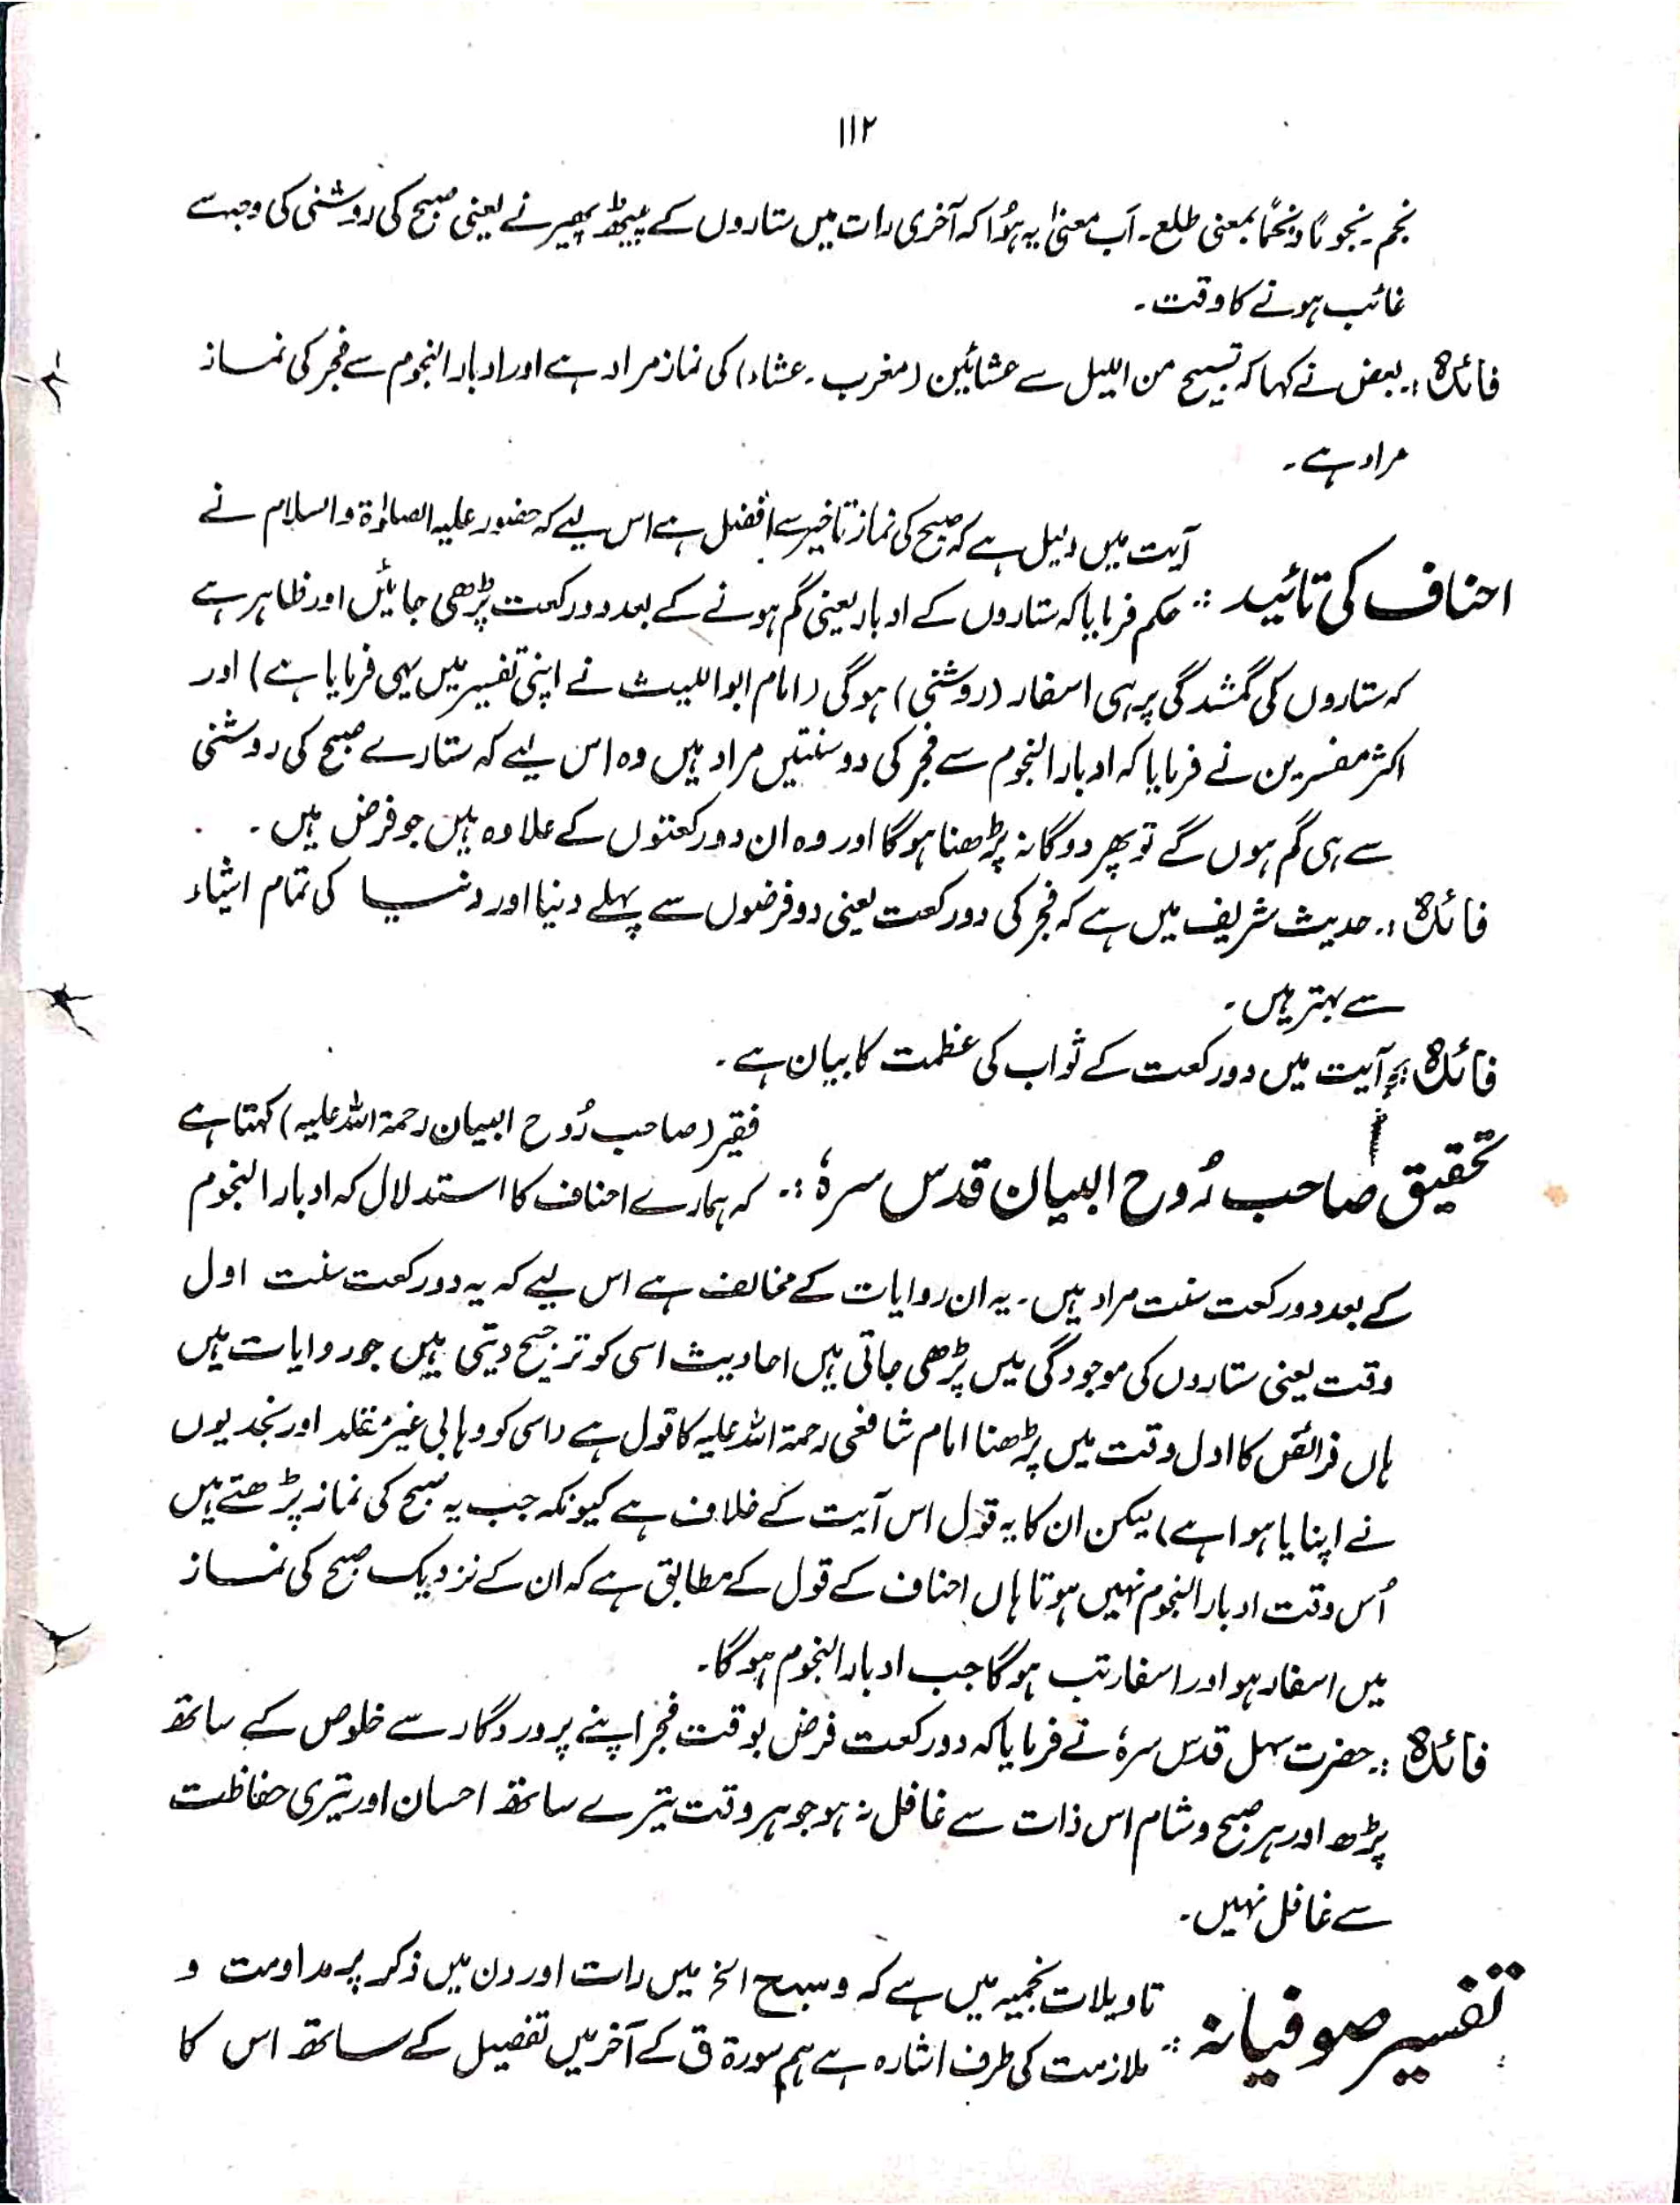 ۱۱۲
نجم۔ نجومًا ونجمًا بمعنی طلع۔ اَب معنیٰ یہ ہُوا کہ آخری رات میں ستاروں کے پیٹھ پھیرنے یعنی صبح کی روشنی کی وجہ سے
غائب ہونے کا وقت۔
فائدہ:۔ بعض نے کہا کہ تسبیح من اللیل سے عشائین (مغرب۔ عشاء) کی نماز مراد ہے اور ادبار النجوم سے فجر کی نماز
مراد ہے۔
آیت میں دلیل ہے کہ صبح کی نماز تاخیر سے افضل ہے اس لیے کہ حضور علیہ الصلوٰۃ والسلام نے
احناف کی تائید :۔ حکم فرمایا کہ ستاروں کے ادبار یعنی گم ہونے کے بعد دو رکعت پڑھی جائیں اور ظاہر ہے
کہ ستاروں کی گمشدگی پر ہی اسفار (روشنی) ہوگی (امام ابو اللیث نے اپنی تفسیر میں یہی فرمایا ہے) اور
اکثر مفسرین نے فرمایا کہ ادبار النجوم سے فجر کی دو سنتیں مراد ہیں وہ اس لیے کہ ستارے صبح کی روشنی
سے ہی گم ہوں گے تو پھر دوگانہ پڑھنا ہوگا اور وہ ان دو رکعتوں کے علاوہ ہیں جو فرض ہیں۔
فائدہ:۔ حدیث شریف میں ہے کہ فجر کی دو رکعت یعنی دو فرضوں سے پہلے دنیا اور دنیا کی تمام اشیاء
سے بہتر ہیں۔
فائدہ:۔ آیت میں دو رکعت کے ثواب کی عظمت کا بیان ہے۔
فقیر (صاحب رُوح البیان رحمۃ اللہ علیہ) کہتا ہے
تحقیق صاحب رُوح البیان قدس سرہٗ :۔ کہ ہمارے احناف کا استدلال کہ ادبار النجوم
کے بعد دو رکعت سنت مراد ہیں۔ یہ ان روایات کے مخالف ہے اس لیے کہ یہ دو رکعت سنت اول
وقت یعنی ستاروں کی موجودگی میں پڑھی جاتی ہیں احادیث اسی کو ترجیح دیتی ہیں جو روایات ہیں
ہاں فرائض کا اول وقت میں پڑھنا امام شافعی رحمۃ اللہ علیہ کا قول ہے (اسی کو وہابی غیر مقلد اور نجدیوں
نے اپنایا ہوا ہے) لیکن ان کا یہ قول اس آیت کے خلاف ہے کیونکہ جب یہ صبح کی نماز پڑھتے ہیں
اُس وقت ادبار النجوم نہیں ہوتا ہاں احناف کے قول کے مطابق ہے کہ ان کے نزدیک صبح کی نماز
میں اسفار ہو اور اسفار تب ہوگا جب ادبار النجوم ہوگا۔
فائدہ:۔ حضرت سہل قدس سرہٗ نے فرمایا کہ دو رکعت فرض بوقت فجر اپنے پروردگار سے خلوص کے ساتھ
پڑھ اور ہر صبح و شام اس ذات سے غافل نہ ہو جو ہر وقت تیرے ساتھ احسان اور تیری حفاظت
سے غافل نہیں۔
تاویلات نجمیہ میں ہے کہ وسبح الخ میں رات اور دن میں ذکر پر مداومت و
تفسیر صوفیانہ :۔ ملازمت کی طرف اشارہ ہے ہم سورۃ ق کے آخر میں تفصیل کے ساتھ اس کا